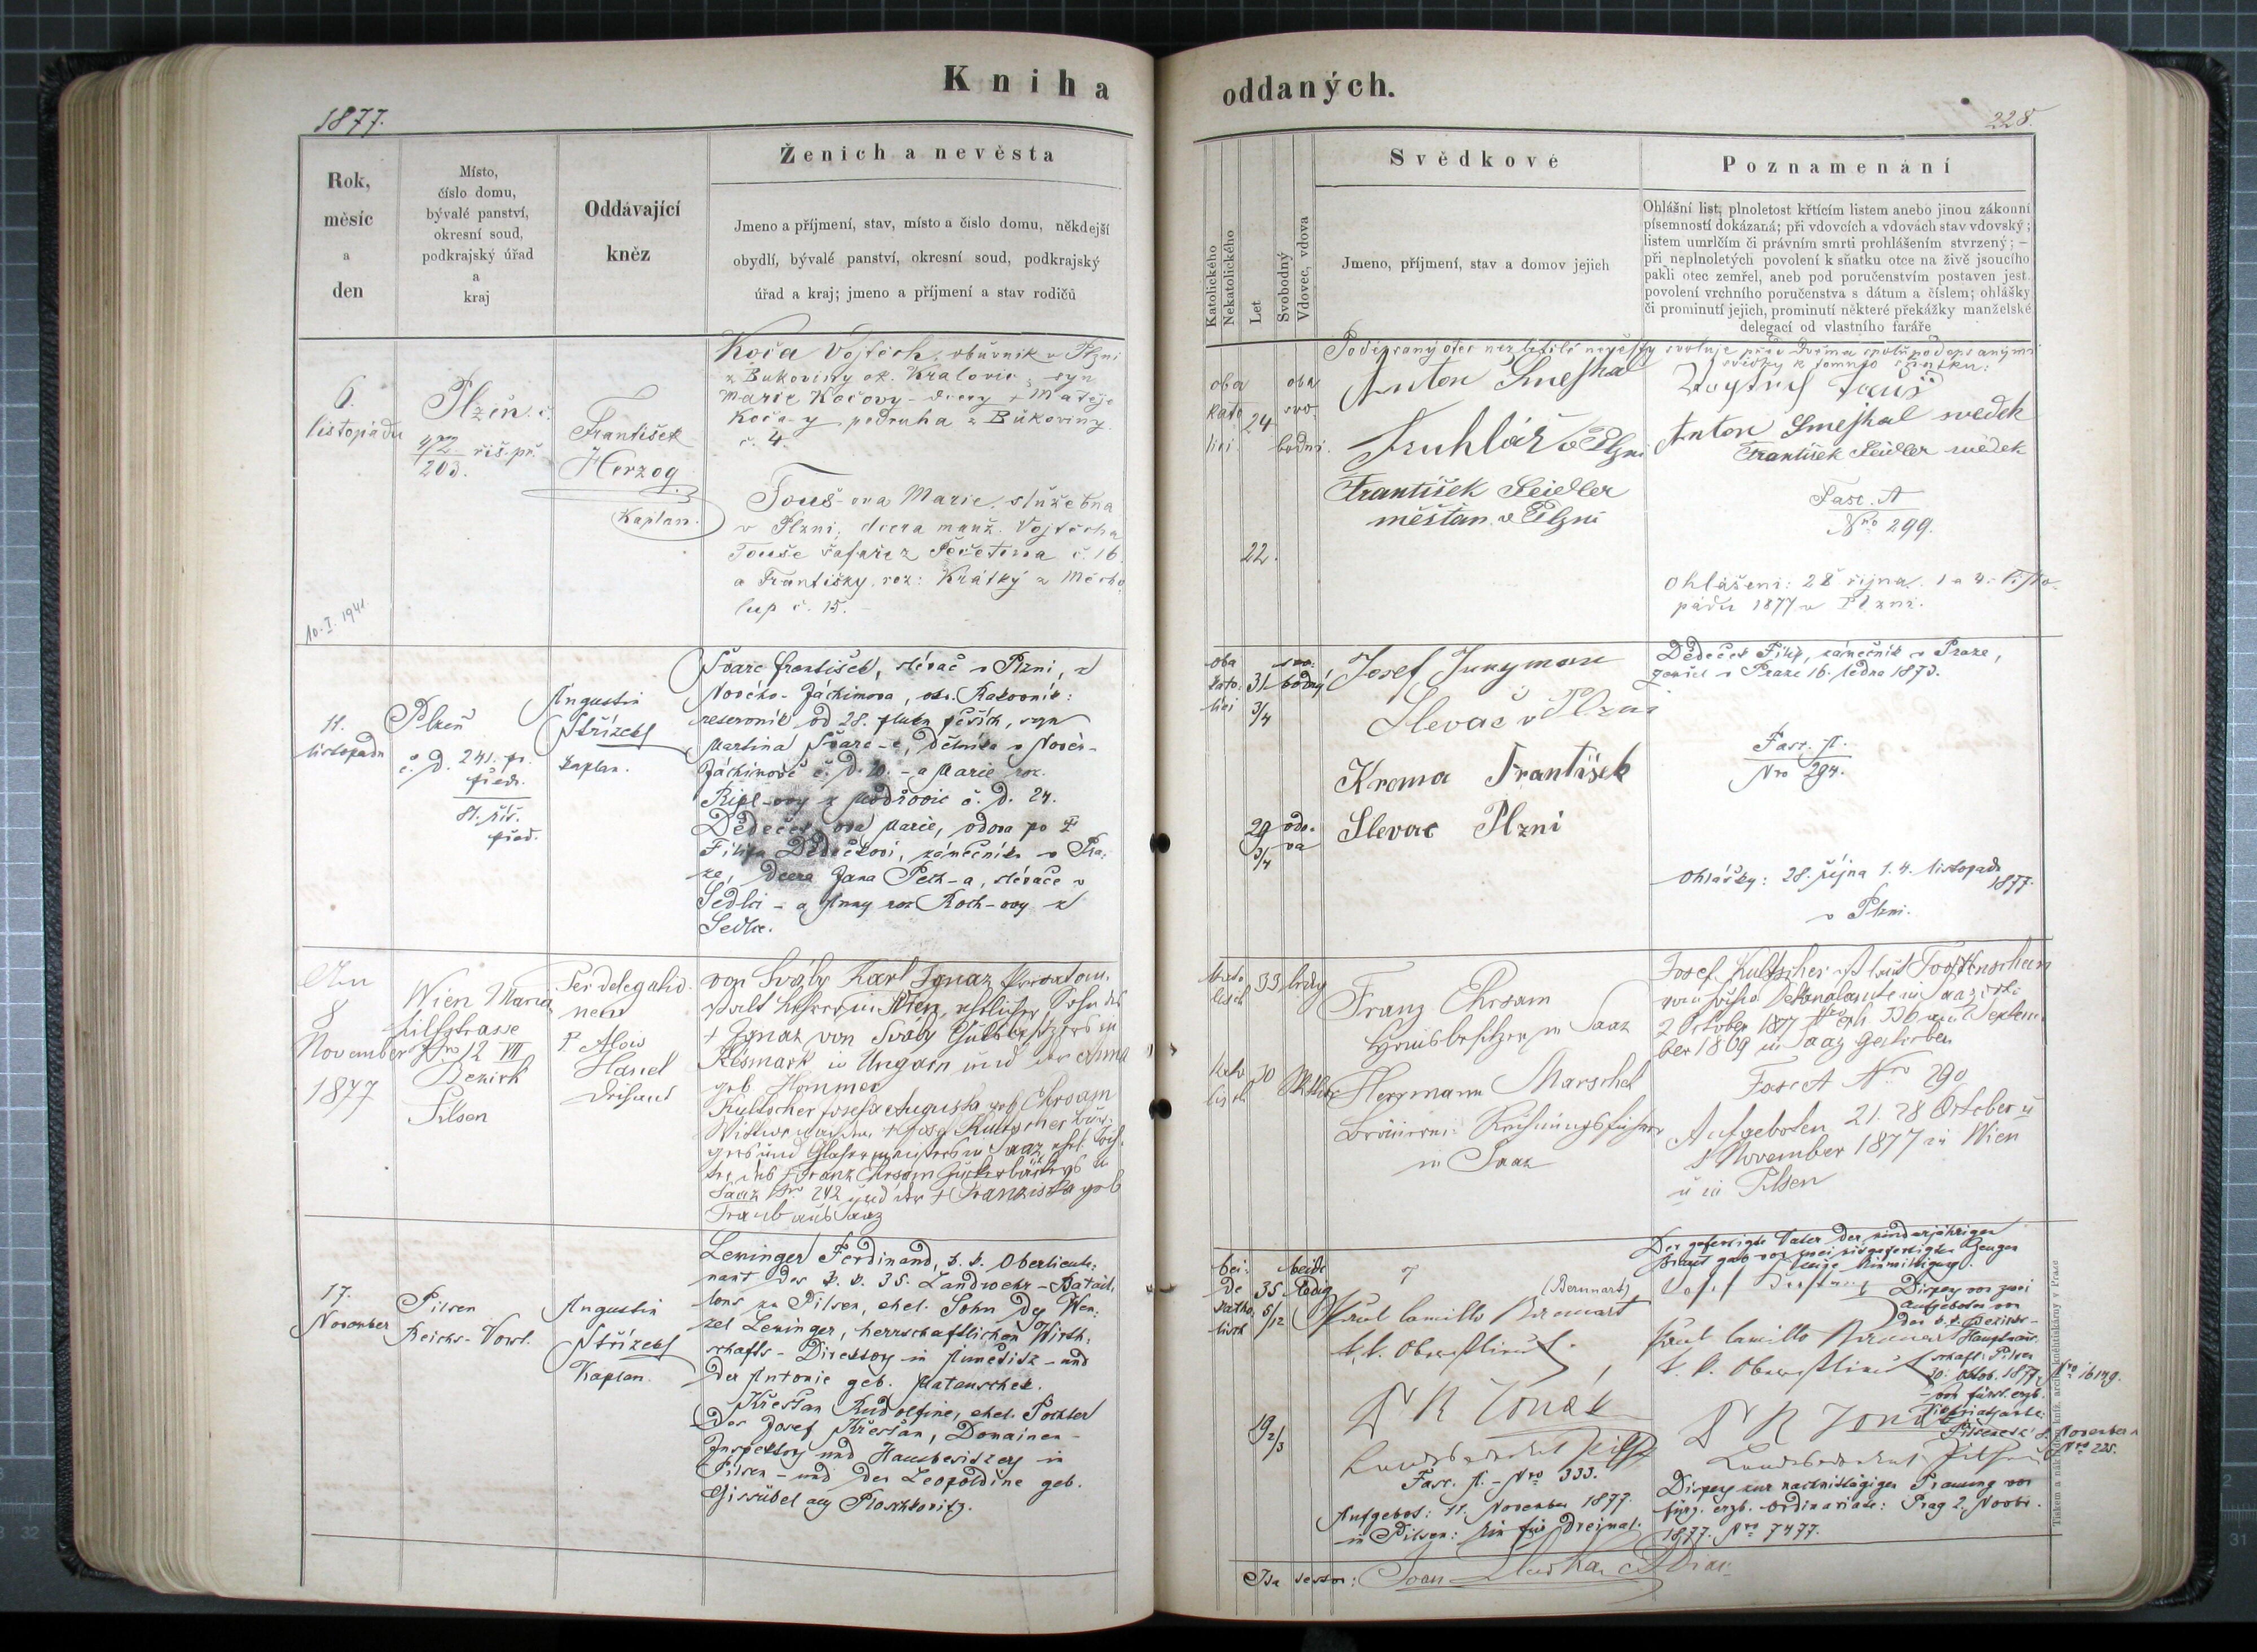 Kniha oddaných.
1877.
228.
Rok,
měsíc
a
den
Místo,
číslo domu,
bývalé panství,
okresní soud,
podkrajský úřad
a
kraj
Oddávající
kněz
Ženich a nevěsta
Jmeno a příjmení, stav, místo a číslo domu, někdejší
obydlí, bývalé panství, okresní soud, podkrajský
úřad a kraj; jmeno a příjmení a stav rodičů
Katolického
Nekatolického
Let
Svobodný
Vdovec, vdova
Svědkové
Jmeno, příjmení, stav a domov jejich
Poznamenání
Ohlášní list, plnoletost křtícím listem anebo jinou zákonní
písemností dokázaná; při vdovcích a vdovách stav vdovský;
listem umrlčím či právním smrti prohlášením stvrzený; —
při neplnoletých povolení k sňatku otce na živě jsoucího
pakli otec zemřel, aneb pod poručenstvím postaven jest.
povolení vrchního poručenstva s dátum a číslem; ohlášky
či prominutí jejich, prominutí některé překážky manželské
delegací od vlastního faráře
6.
listopadu
10. I. 1941.
Plzeň č.
472 řiš. př.
20 d.
František
Herzog
Kaplan.
Koča Vojtěch, obuvník v Plzni
z Bukoviny ok. Kralovic, syn
Marie Kočovy - dcery + Matěje
Koča-y podruha z Bukoviny
č. 4.
Touš-ova Marie, služebna
v Plzni, dcera manž. Vojtěcha
Touše šafáře z č. 16.
a Františky roz: Krátký z Měcho-
lup č. 15.
oba
kato
lici
24
22.
oba
svo-
bodni
Podepsaný otec nezletilé nevěsty svoluje před dvěma spolupodepsanými
svědky k tomuto sňatku:
Anton Smejkal
Truhlář v Plzni
František Seidler
měštan v Plzni
Anton Smejkal svedek
František Seidler svědek
Fasc. A
Nro 299.
Ohlášení: 28 října, 1 a 4. listo-
padu 1877 v Plzni.
11.
listopadu
Plzeň
č. d. 241. pr.
předm.
81. říš.
před.
Augustin
Střízek
kaplan.
Švarc František, slévač v Plzni, z
Nového-Jáchimova, okr. Rakovník:
reservník od 28. pluku pěších, syn
Martina Švarc-e, dělníka v Novém-
Jáchimově č. d. 10. - a Marie roz.
č. d. 24.
Dědeček-ova Marie, vdova po +
Filipu Dědečkovi, zámečníku v Pra-
ze, dcera Jana Pech-a, slévače v
Sedlci - a Anny roz Koch-ovy z
Sedlce.
oba
kato:
lici
31
3/4
29
3/4
svo:
bodný
vdo-
va
Josef Jungman
Slevač v Plzni
Kroma František
Slevac Plzni
Dědeček Filip, zámečník v Praze,
zemřel v Praze 16. ledna 1873.
Fasc. A.
Nro 294.
Ohlášky: 28. října 1. 4. listopadu
1877.
v Plzni.
Am
8
November
1877
Wien Maria
hilfstrasse
Nro 12 VII
Bezirk
Pilsen
Per delegatio-
nem
P. Alois
Hanel
von Sváby Karl Ignaz
in Wien, ehelicher Sohn des
+ Ignaz von Sváby Gutsbesitzers in
Kesmark in Ungarn und der Anna
geb Hammer
Kultscher Josefa Augusta geb Chrsam
Witwe nach dem + Josef Kultscher Bür-
gers und Glasermeisters in Saaz, ehel. Toch-
ter des + Franz Chrsam Zuckerbäckers in
Saaz Nro 242 und der + Franziska geb
Traub aus Saaz
kato
lisch
33
ledig
kato
lisch
30
Wittwe
Franz Chrsam
Hausbesitzer in Saaz
Herrmann Marschel
in Saaz
Josef Kultscher ist laut Todtenschein
vom Dekanalamte in Saaz
2 October 1877
ber 1869 in Saaz gestorben
Fasc A Nro 290
Aufgeboten 21. 28 October u
1 November 1877 in Wien
u in Pilsen
17.
November
Pilsen
Reichs-Vorst.
Augustin
Střízek
Kaplan.
Leminger Ferdinand, k. k. Oberlieute-
nant des k. k. 35. Landwehr-Batail-
lons zu Pilsen, ehel. Sohn des Wen-
zel Leminger, herrschaftlichen Wirth-
schafts-Direktors in - und
der Antonie geb. Matauschek.
Křestan Rudolfine, ehel. Tochter
des Josef Křestan, Domainen-
Inspektors und Hausbesitzers in
Pilsen - und der Leopoldine geb.
Gissübel aus Ploschkovitz.
bei-
de
katho-
lisch
35
5/12
19
2/3
beide
ledig
(Bernnart)
Paul Camillo Bernnart
k. k. Oberstlieut.
Dr R Tonák
Fasc. A. - Nro 333.
Aufgebot: 11. November 1877.
in Pilsen: Ein für Dreimal.
Der gefertigte Vater der minderjährigen
Braut gab vor zwei mitgefertigten Zeugen
seine Einwilligung.
Dispens von zwei
Aufgeboten von
der k. k. Bezirks-
Hauptmann-
schaft Pilsen
30. Oktob. 1877
Paul Camillo Bernnart
k. k. Oberstlieut
Dr R Tonák
November
Nro 225.
Dispens zur nachmittägigen Trauung vom
fürst. erzb. Ordinariate: Prag 2. Novbr.
1877. Nro 7477.
Tiskem a nákladem kníž. arcib. knihtiskárny v Praze